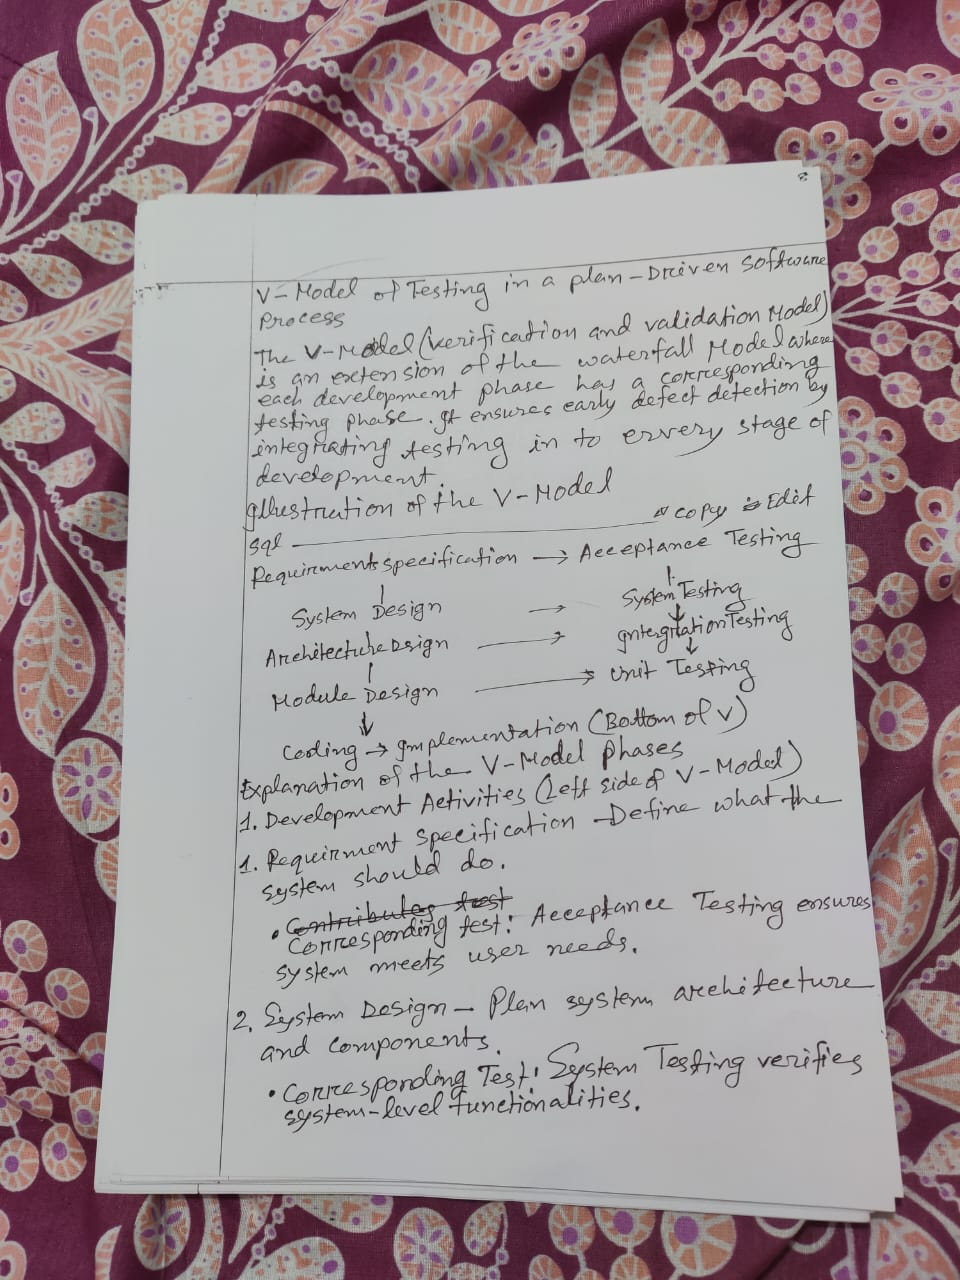 8
V-Model of Testing in a plan-Driven software
process
The V-Model (verification and validation Model)
is an extension of the waterfall Model where
each development phase has a corresponding
testing phase. It ensures early defect detection by
integrating testing in to ervery stage of
development.
Illustration of the V-Model
sql copy Edit
Requirments specification → Acceptance Testing
System Design → System Testing
Architecture Design → Intergration Testing
Module Design → Unit Testing
Cooling → Implementation (Bottom of V)
Explanation of the V-Model phases
1. Development Activities (Left side of V-Model)
1. Requirment specification - Define what the
system should do.
• Contributes test
Corresponding test: Acceptance Testing ensures
system meets user needs.
2. System Design - Plan system architecture
and components.
• Corresponding Test: System Testing verifies
system-level functionalities.